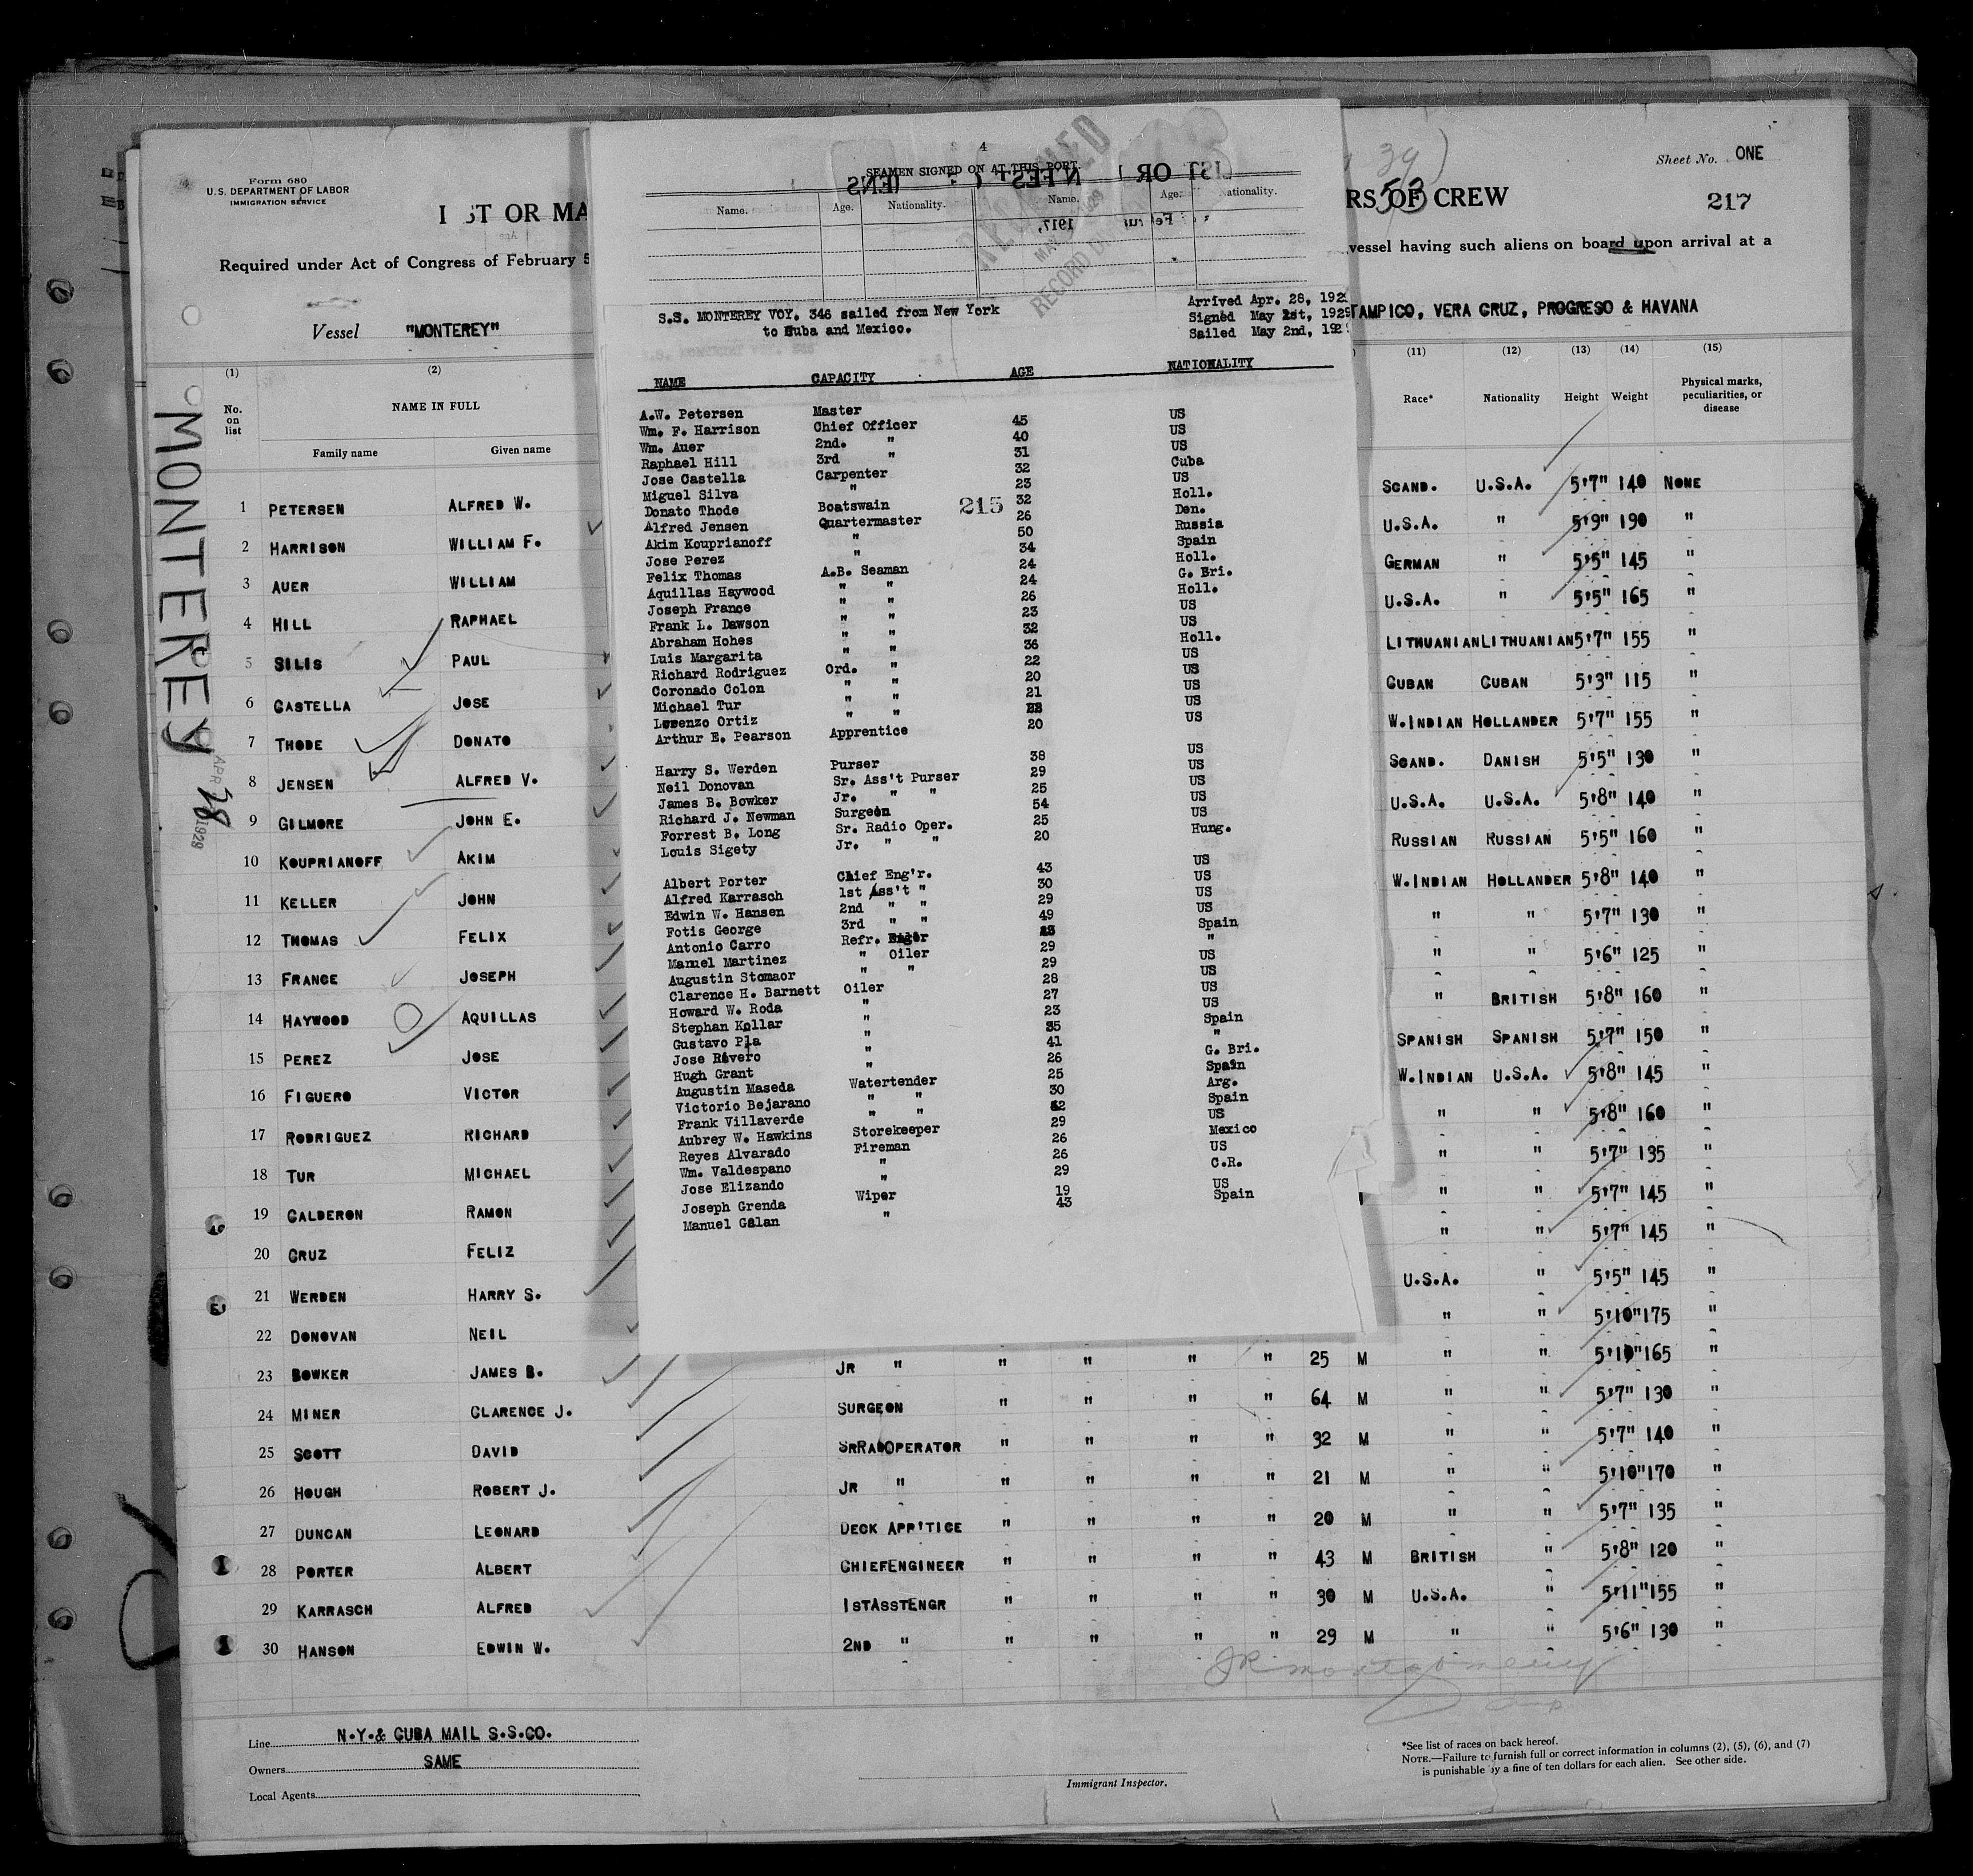 Form 680
U.S. DEPARTMENT OF LABOR
IMMIGRATION SERVICE
Sheet No. ONE
217
ST OR MA
RS OF CREW
53
Required under Act of Congress of February 5
vessel having such aliens on board upon arrival at a
Vessel "MONTEREY"
TAMPICO, VERA CRUZ, PROGRESO & HAVANA
MONTEREY
APR 28 1929
4
SEAMEN SIGNED ON AT THIS PORT.
Name. Age. Nationality. Name. Age. Nationality.
S.S. MONTEREY VOY. 346 sailed from New York
to Cuba and Mexico.
Arrived Apr. 28, 192
Signed May 1st, 1929
Sailed May 2nd, 192
NAME CAPACITY AGE NATIONALITY
A.W. Petersen Master US
Wm. F. Harrison Chief Officer 45 US
Wm. Auer 2nd. " 40 US
Raphael Hill 3rd " 31 Cuba
Jose Castella Carpenter 32 US
Miguel Silva " 23 Holl.
Donato Thode Boatswain 215 32 Den.
Alfred Jensen Quartermaster 26 Russia
Akim Kouprianoff " 50 Spain
Jose Perez " 34 Holl.
Felix Thomas A.B. Seaman 24 G. Bri.
Aquillas Haywood " " 24 Holl.
Joseph France " " 26 US
Frank L. Dawson " " 23 US
Abraham Hohes " " 32 Holl.
Luis Margarita " " 36 US
Richard Rodriguez Ord. " 22 US
Coronado Colon " " 20 US
Michael Tur " " 21 US
Lorenzo Ortiz " " US
Arthur E. Pearson Apprentice 20
US
Harry S. Werden Purser 38 US
Neil Donovan Sr. Ass't Purser 29 US
James B. Bowker Jr. " " 25 US
Richard J. Newman Surgeon 54 US
Forrest B. Long Sr. Radio Oper. 25 Hung.
Louis Sigety Jr. " " 20
US
Albert Porter Chief Eng'r. 43 US
Alfred Karrasch 1st Ass't " 30 US
Edwin W. Hansen 2nd " " 29 US
Fotis George 3rd " " 49 Spain
Antonio Carro Refr. "
Manuel Martinez " Oiler 29 US
Augustin Stomaor " " 29 US
Clarence H. Barnett Oiler 28 US
Howard W. Roda " 27 US
Stephan Kollar " 23 Spain
Gustavo Pla " 35 "
Jose Rivero " 41 G. Bri.
Hugh Grant " 26 Spain
Augustin Maseda Watertender 25 Arg.
Victorio Bejarano " " 30 Spain
Frank Villaverde " " US
Aubrey W. Hawkins Storekeeper 29 Mexico
Reyes Alvarado Fireman 26 US
Wm. Valdespano " 26 C.R.
Jose Elizando " 29 US
Joseph Grenda Wiper 19 Spain
Manuel Galan " 43
(1) (2) (11) (12) (13) (14) (15)
No. on list NAME IN FULL Race* Nationality Height Weight Physical marks, peculiarities, or disease
Family name Given name
1 PETERSEN ALFRED W. SCAND. U.S.A. 5'7" 140 NONE
2 HARRISON WILLIAM F. U.S.A. " 5'9" 190 "
3 AUER WILLIAM GERMAN " 5'5" 145 "
4 HILL RAPHAEL U.S.A. " 5'5" 165 "
5 SILIS PAUL LITHUANIAN LITHUANIAN 5'7" 155 "
6 CASTELLA JOSE CUBAN CUBAN 5'3" 115 "
7 THODE DONATO W.INDIAN HOLLANDER 5'7" 155 "
8 JENSEN ALFRED V. SCAND. DANISH 5'5" 130 "
9 GILMORE JOHN E. U.S.A. U.S.A. 5'8" 140 "
10 KOUPRIANOFF AKIM RUSSIAN RUSSIAN 5'5" 160 "
11 KELLER JOHN W.INDIAN HOLLANDER 5'8" 140 "
12 THOMAS FELIX " " 5'7" 130 "
13 FRANCE JOSEPH " " 5'6" 125 "
14 HAYWOOD AQUILLAS " BRITISH 5'8" 160 "
15 PEREZ JOSE SPANISH SPANISH 5'7" 150 "
16 FIGUERO VICTOR W.INDIAN U.S.A. 5'8" 145 "
17 RODRIGUEZ RICHARD " " 5'8" 160 "
18 TUR MICHAEL " " 5'7" 135 "
19 CALDERON RAMON " " 5'7" 145 "
20 CRUZ FELIZ " " 5'7" 145 "
21 WERDEN HARRY S. U.S.A. " 5'5" 145 "
22 DONOVAN NEIL " " 5'10" 175 "
23 BOWKER JAMES B. JR " " " " " 25 M " " 5'10" 165 "
24 MINER CLARENCE J. SURGEON " " " " 64 M " " 5'7" 130 "
25 SCOTT DAVID SRRADOPERATOR " " " " 32 M " " 5'7" 140 "
26 HOUGH ROBERT J. JR " " " " " 21 M " " 5'10" 170 "
27 DUNCAN LEONARD DECK APP'TICE " " " " 20 M " " 5'7" 135 "
28 PORTER ALBERT CHIEFENGINEER " " " " 43 M BRITISH " 5'8" 120 "
29 KARRASCH ALFRED 1STASSTENGR " " " " 30 M U.S.A. " 5'11" 155 "
30 HANSON EDWIN W. 2ND " " " " " 29 M " " 5'6" 130 "
JR Montgomery
Line N.Y.& CUBA MAIL S.S.CO.
Owners SAME
Local Agents
Immigrant Inspector.
*See list of races on back hereof.
NOTE.—Failure to furnish full or correct information in columns (2), (5), (6), and (7)
is punishable by a fine of ten dollars for each alien. See other side.